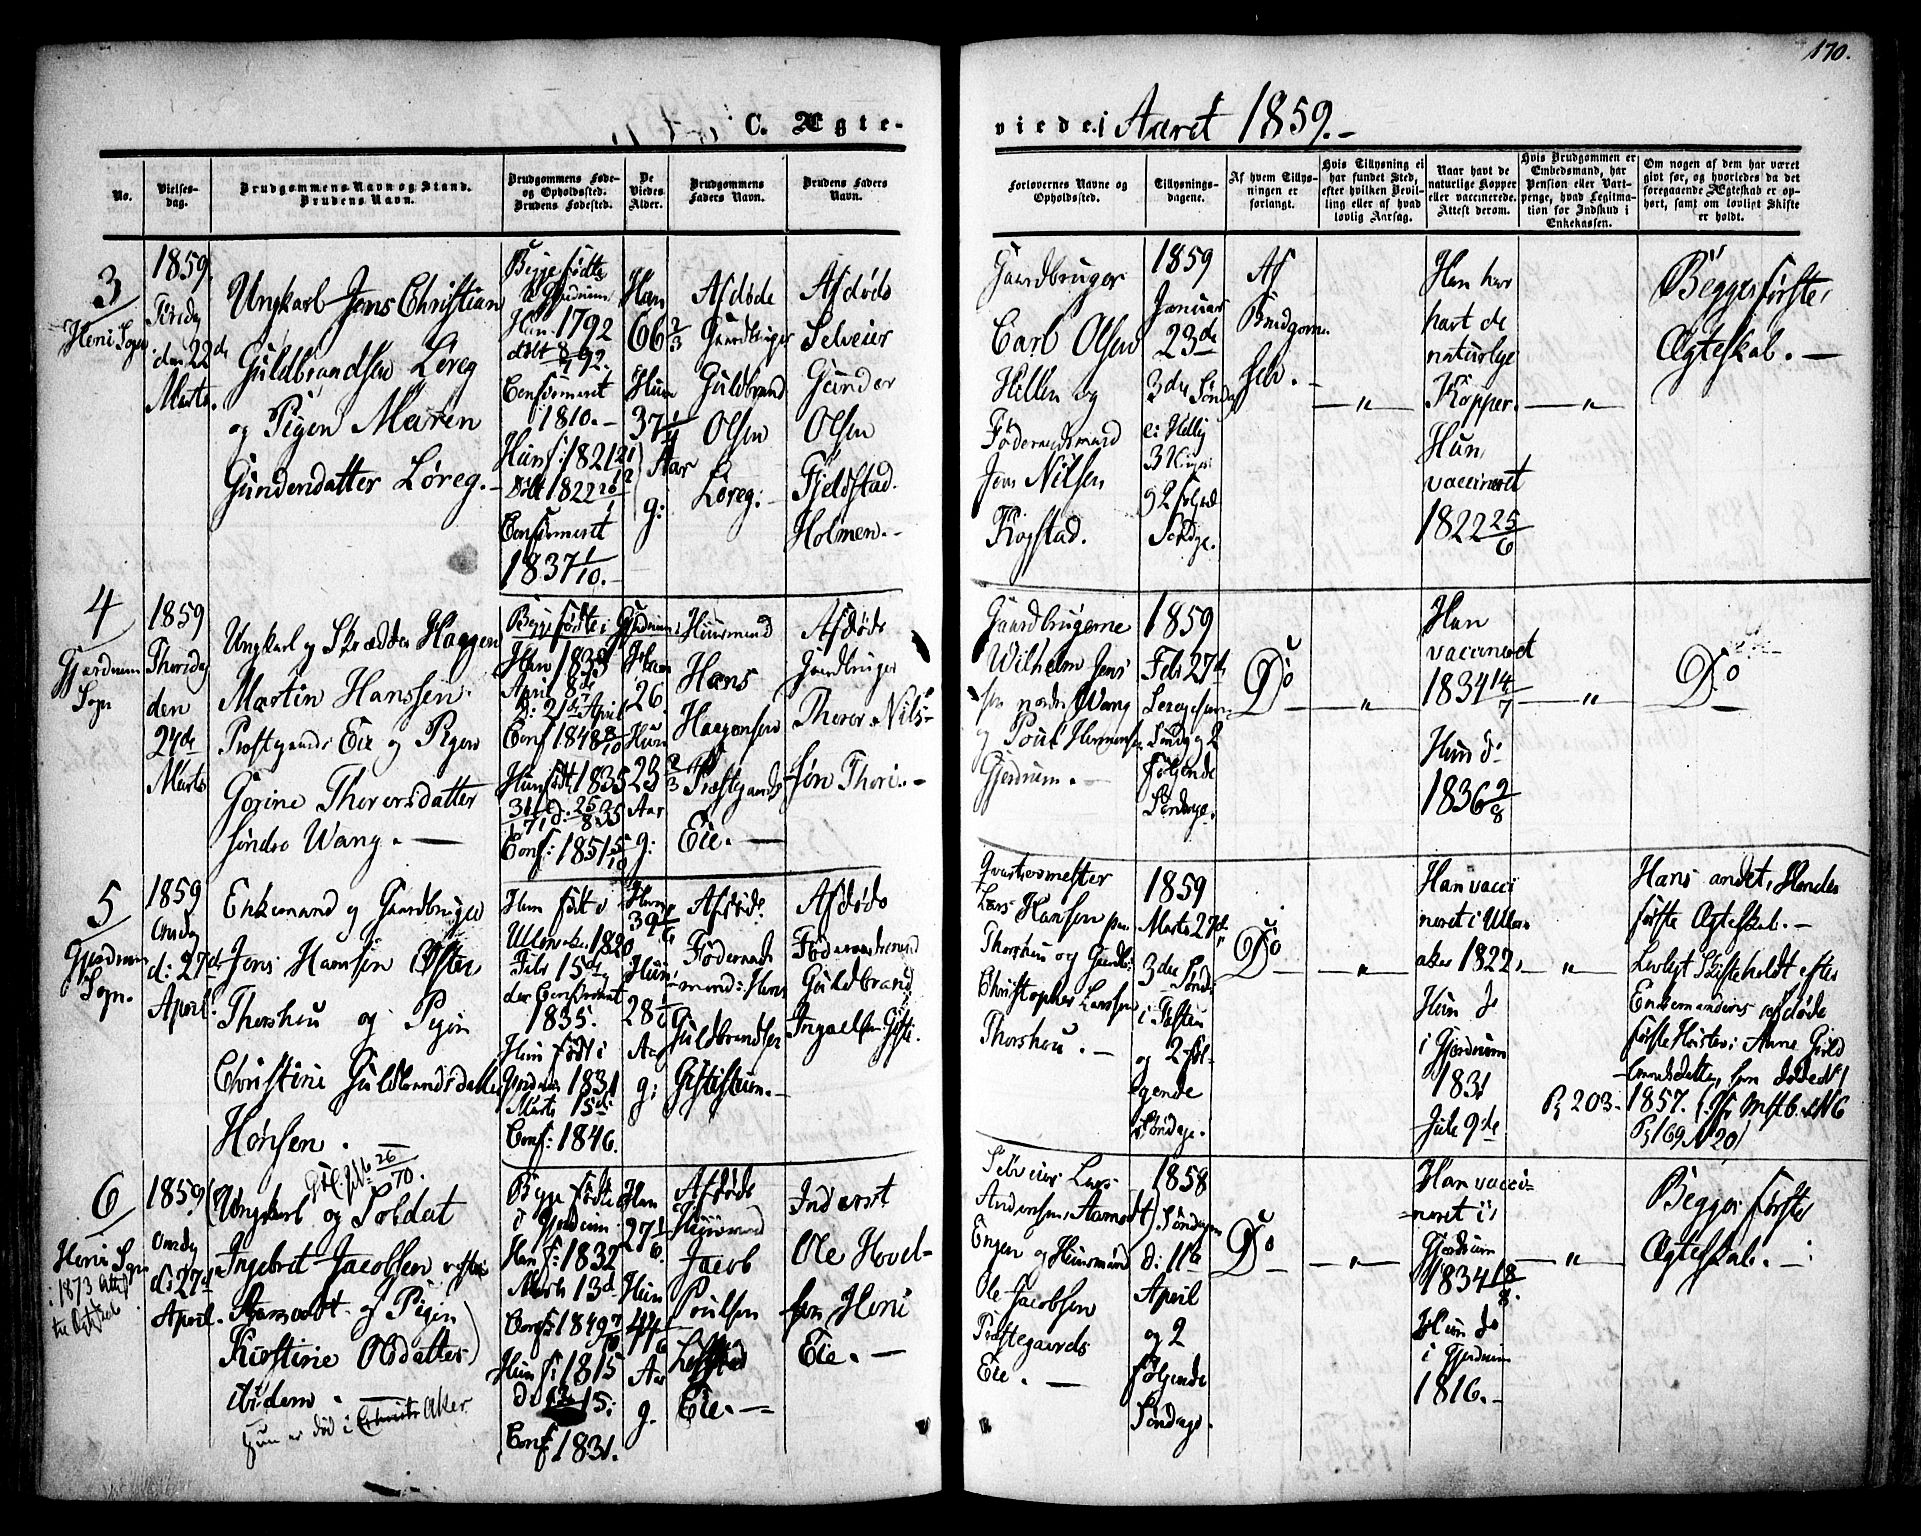 170.
C. Ægte-
viede. i Aaret 1859.-
No.
Vielses-
dag.
Brudgommens Navn og Stand.
Brudens Navn.
Brudgommens Føde-
og Opholdssted.
Brudens Fødested.
De
Viedes
Alder.
Brudgommens
Faders Navn.
Brudens Faders
Navn.
Forlovernes Navne og
Opholdssted.
Tillysnings-
dagene.
Af hvem Tillys-
ningen er
forlangt.
Hvis Tillysning ei
har fundet Sted,
efter hvilken Bevil-
ling eller af hvad
lovlig Aarsag.
Naar havt de
naturlige Kopper
eller vaccinerede.
Attest derom.
Hvis Brudgommen er
Embedsmand, har
Pension eller Vart-
penge, hvad Legitima-
tion for Indskud i
Enkekassen.
Om nogen af dem har været
gift før, og hvorledes da det
foregaaende Ægteskab er op-
hørt, samt om lovligt Skifte
er holdt.
3
Heni Sogn
1859.
Tirsdag
den 22de
Marts.
Ungkarl Jens Christian
Guldbrandsen Løreg
og Pigen Maren
Gundersdatter Løreg.-
Begge fødte
i Gjerdrum
Han 1792
døbt 8/4 92.
Confirmeret
1810.-
Hun f: 1821
Døbt 1822
Confirmeret
1837 1/10.-
Han
66 2/3
Hun
37 1/4
Aar
g:
Afdøde
Gaardbruger
Guldbrand
Olsen
Løreg:-
Afdøde
Selveier
Gunder
Olsen
Fjeldstad
Holmen.-
Gaardbruger
Carl Olsen
Hellen og
Føderaadsmand
Jens Nilsen
Kogstad.
1859
Januar
23de
3die Søndag
e: Hellig
3 Konger
og 2 følgende
Søndage.
Af
Brudgommen
selv.
— " —
Han har
havt de
naturlige
Kopper.
Hun
vaccineret
1822 25/6
— " —
Begges første
Ægteskab.—
4
Gjerdrum
Sogn
1859
Thorsdag
den
24de
Marts
Ungkarl og Skrædder Haagen
Martin Hanssen
Præstgaards Eie og Pigen
Gorine Thorersdatter
søndre Wang.—
Begge fødte i Gjerdrum:
Han 1833
April 8de
d: 21de April
Conf 1848 8/10
Hun født 1835
31/7 d: 25/8 35
Conf: 1851 5/10
Han
26.
Hun
23 2/3
Aar
g:
Huusmand
Hans
Haagensen
Præstgaards
Eie.—
Afdøde
Gaardbruger
Thorer Nils-
søn Thori.-
Gaardbrugerne
Wilhelm Jens
sen nordre Wang
og Poul Hermansen
Gjerdrum.-
1859
Feb: 27de
Søndag og 2
følgende
Søndage.
Do
— " —
Han
vaccineret
1834 14/7
Hun do
1836 2/8
— " —
Do
5
Gjerdrum
Sogn.
1859
Onsdag
d: 27de
April.
Enkemand og Gaardbruger
Jens Hansen Østre
Thorshou og Pigen
Christine Guldbrandsdatter
Hønsen.
Han født i
Ullensaker 1820
Febr 15de
der Confirmeret
1835.
Hun født i
Gjerdrum 1831
Marts 15de
Conf: 1846.
Han
39 1/6
Hun
28 1/6
Aar
g:
Afdøde
Føderaads
mand: Hans
Guldbrandsen
Afdøde
Føderaadsmand
Guldbrand
Qvartermester
Lars Hansen paa
Thorshou og Gaardbr:
Christopher Larssen
Thorshou.-
1859
Marts 27de
3die Søndag
i Fasten
og 2 føl-
gende
Søndage.
Do
— " —
Han vacci
neret i Ullens
aker 1822,
Hun do
i Gjerdrum
1831
Juli 9de
— " —
Hans andet, Hendes
første Ægteskab.-
Lovligt Skifte holdt efter
Enkemandens afdøde
første Hustru: Anne Guld
brandsdatter, hun døde
1857.
Pg 203.
Pg 169 N 20)
6
Heni Sogn
1873
1859
Onsdag
d: 27de
April.
26/10 70.
(Ungkarl og Soldat
Ingebret Jacobsen
Aamodt og Pigen
Kirstine Olsdatter)
ibidem.
Hun er død i Aker
Begge fødte
i Gjerdrum
Han f: 1832
Marts 13de
Conf: 1849 7/10
Hun f: 1815
Conf 1831.
Han
27 1/6
Hun
44
Aar
g.
Afdøde
Huusmand
Jacob
Poulsen
Eie.—
Inderst
Ole Hovel-
sen Heni
Eie.—
Selveier Lars
Andersen, Aamodt
Engen og Huusmand
Ole Jacobsen
Præstegaards
Eie.—
1858
Søndagen
d: 11te
April
og 2
følgende
Søndage.
Do
— " —
Han vacci-
neret i
Gjerdrum
1834 18/8.
Hun do
i Gjerdrum
1816.-
— " —
Begges første
Ægteskab.—